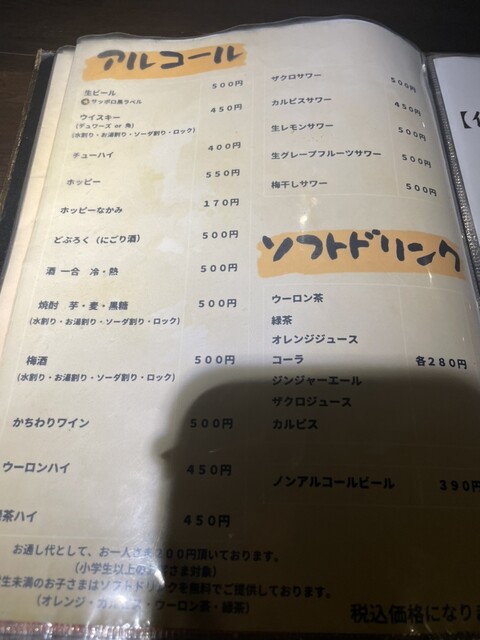 アルコール
生ビール 500円
サッポロ黒ラベル
ウイスキー 450円
(デュワーズ or 角)
(水割り・お湯割り・ソーダ割り・ロック)
チューハイ 400円
ホッピー 550円
ホッピーなかみ 170円
どぶろく(にごり酒) 500円
酒 一合 冷・熱 500円
焼酎 芋・麦・黒糖 500円
(水割り・お湯割り・ソーダ割り・ロック)
梅酒 500円
(水割り・お湯割り・ソーダ割り・ロック)
かちわりワイン 500円
ウーロンハイ 450円
茶ハイ 450円
お通し代として、お一人さま200円頂いております。
(小学生以上のお客さま対象)
生未満のお子さまはソフトドリンクを無料でご提供しております。
(オレンジ・カルピス・ウーロン茶・緑茶)
ザクロサワー 500円
カルピスサワー 450円
生レモンサワー 500円
生グレープフルーツサワー 500円
梅干しサワー 500円
ソフトドリンク
ウーロン茶
緑茶
オレンジジュース
コーラ 各280円
ジンジャーエール
ザクロジュース
カルピス
ノンアルコールビール 390円
税込価格になり